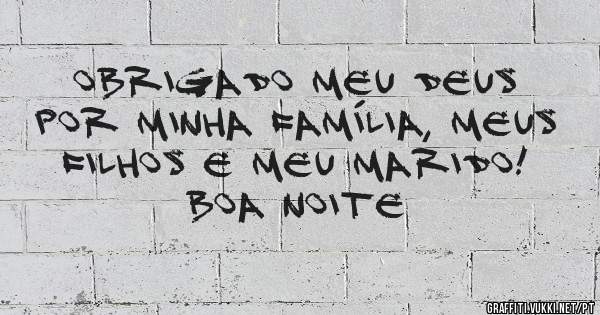 OBRIGADO MEU DEUS
POR MINHA FAMÍLIA, MEUS
FILHOS E MEU MARIDO!
BOA NOITE
GRAFFITI.VUKKI.NET/PT